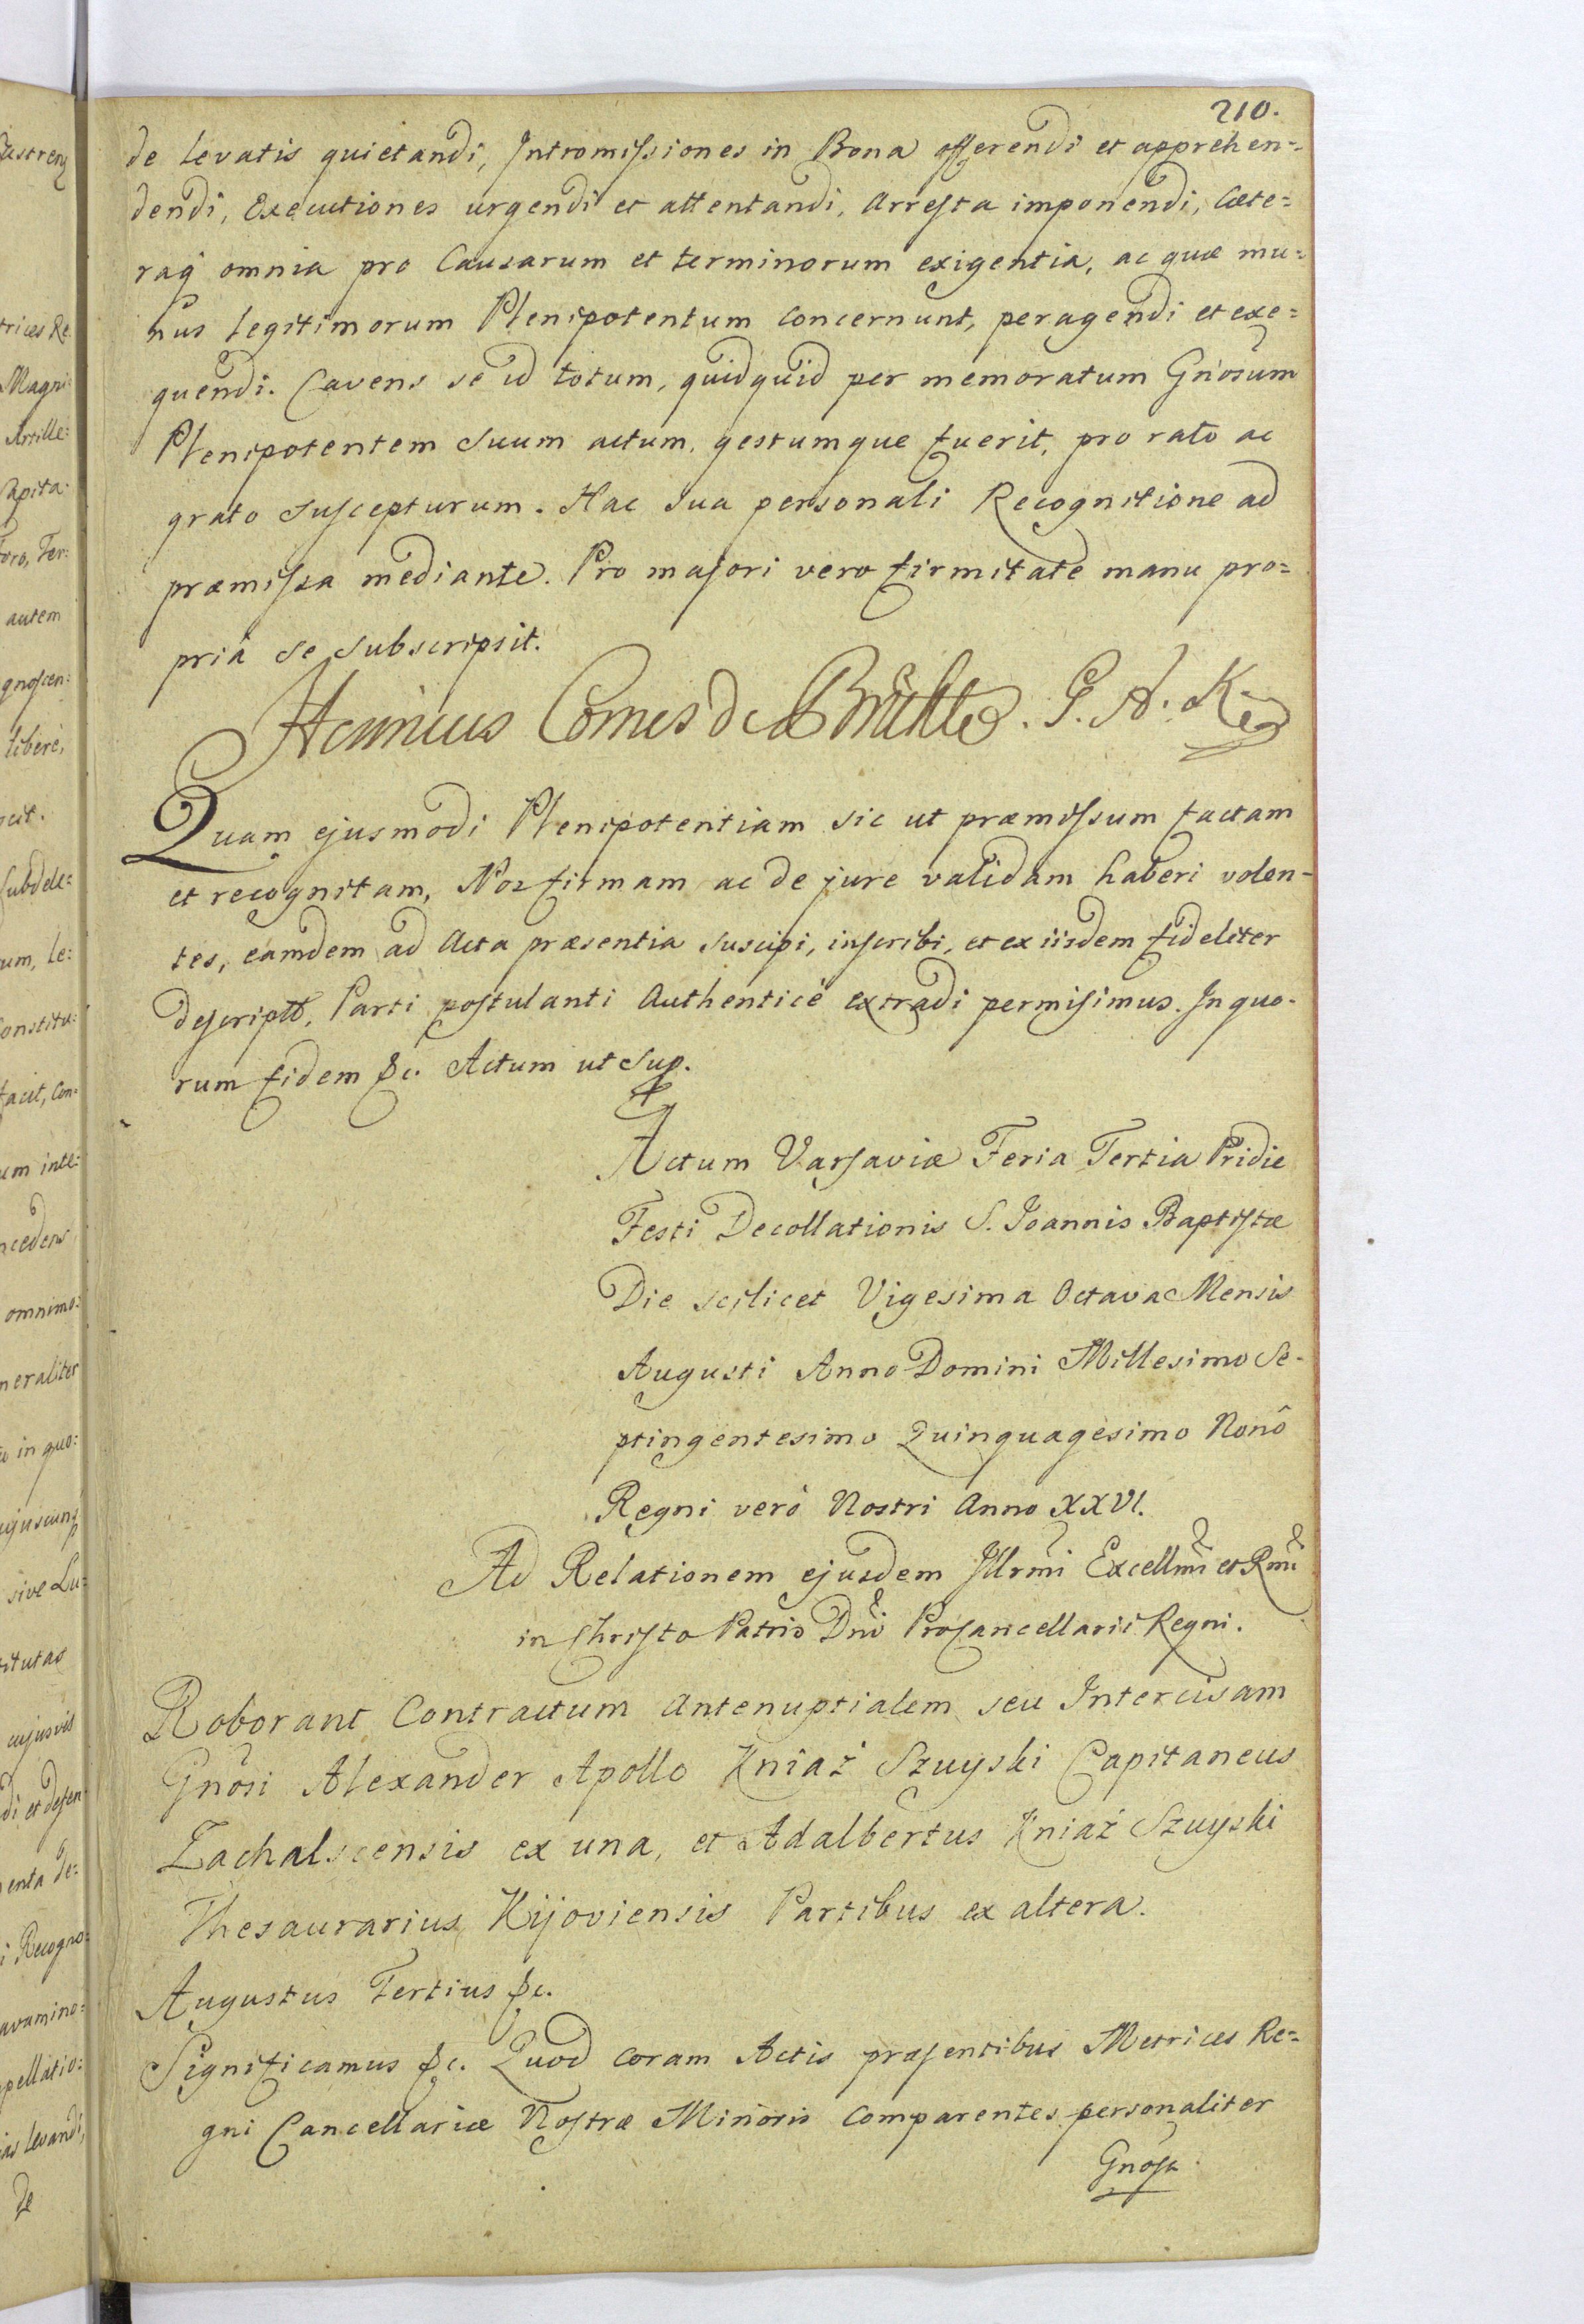 210.
de levatis quietandi, Intromissiones in Bona offerendi et apprehen=
dendi, Executiones urgendi et attentandi, Arresta imponendi, Cæte=
raq́ omnia pro Causarum et terminorum exigentia, ac quæ mu=
nus legitimorum Plenipotentum concernunt, peragendi et exe=
quendi. Cavens se id totum, quidquid per memoratum Gnosum
Plenipotentem Suum actum, gestumque fuerit, pro rato ac
grato suscepturum. Hac sua personali Recognitione ad
præmissa mediante. Pro majori vero firmitate manu pro=
priâ se subscripsit.
Henricus Comes de Brühl. G. A. K.
Quam ejusmodi Plenipotentiam sic ut præmissum factam
et recognitam, Nos firmam ac de jure validam haberi volen-
tes, eamdem ad Acta præsentia suscipi, inscribi, et ex iisdem fideliter
descriptā, Parti postulanti Authenticè extradi permisimus. In quo-
rum fidem &c. Actum ut Sup.
Actum Varsaviæ Feria Tertia Pridie
Festi Decollationis S. Joannis Baptistæ
Die scilicet Vigesima Octava Mensis
Augusti Anno Domini Millesimo Se-
ptingentesimo Quinquagesimo Nonô
Regni verò Nostri Anno XXVI.
Ad Relationem ejusdem Illrmi Excellmi et Rmi
in Christo Patris Dni Procancellarii Regni.
Roborant Contractum Antenuptialem seu Intercisam
Gnosi Alexander Apollo Kniaź Szuyski Capitaneus
Zachalscensis ex una, et Adalbertus Kniaź Szuyski
Thesaurarius Kijoviensis Partibus ex altera.
Augustus Tertius &c.
Significamus &c. Quod coram Actis præsentibus Metrices Re=
gni Cancellariæ Nostræ Minoris Comparentes personaliter